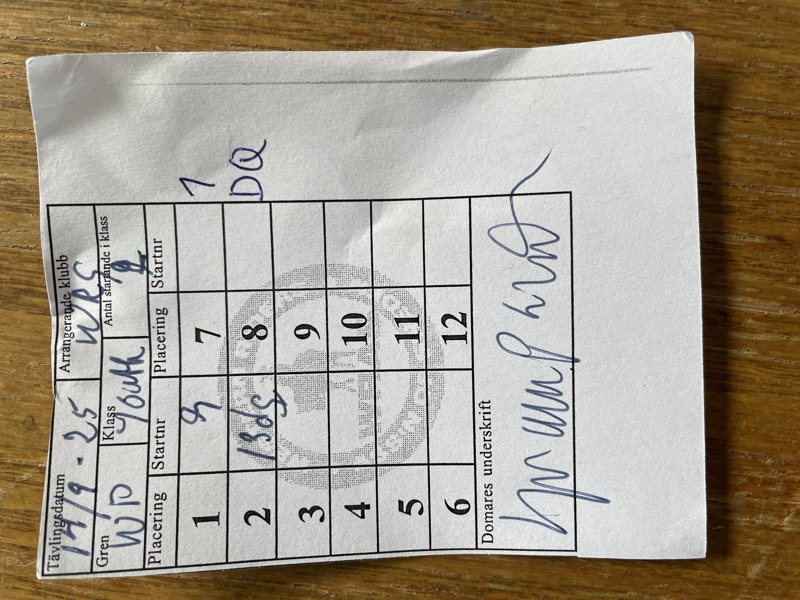 Tävlingsdatum Arrangerande klubb
14/9 - 25 WRS
Gren Klass Antal startande i klass
WP Youth 2
Placering Startnr Placering Startnr
1 9 7 1
2 8 DQ
3 9
4 10
5 11
6 12
Domares underskrift